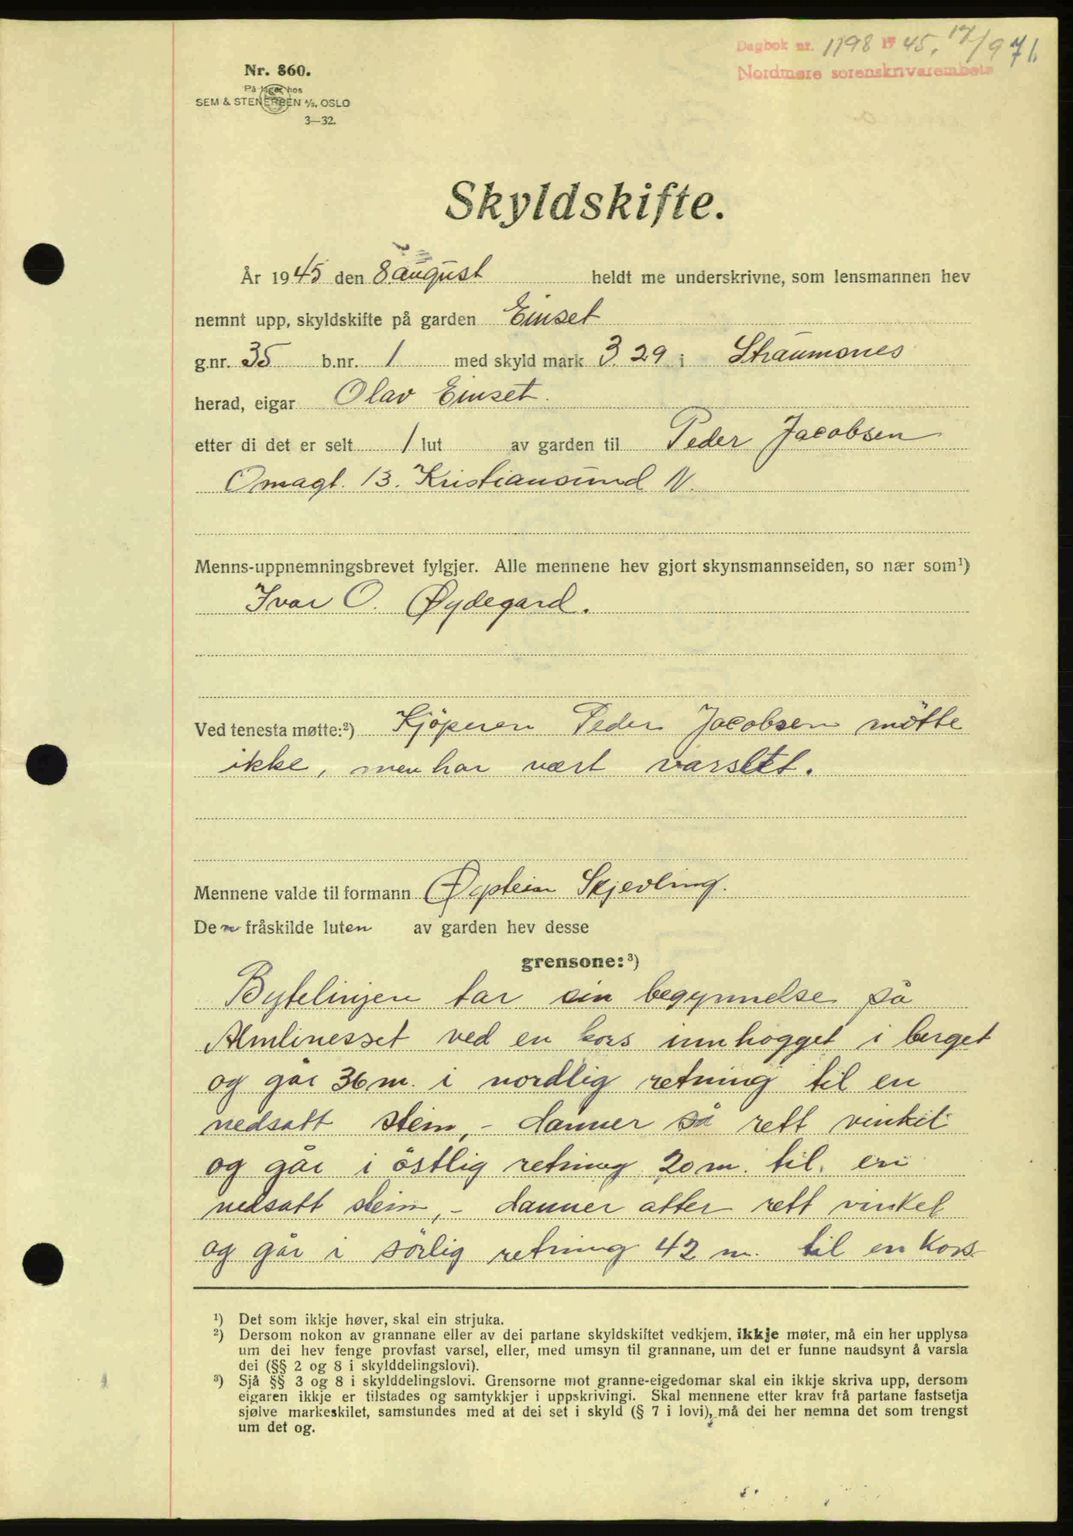 Dagbok nr. 1198 19 45, 17/9 71.
Nordmøre sorenskrivarembete
Nr. 860.
På lager hos
SEM & STENERSEN A/S. OSLO
3—32.
Skyldskifte.
År 1945 den 8 august heldt me underskrivne, som lensmannen hev
nemnt upp, skyldskifte på garden Einset
g.nr. 35 b.nr. 1 med skyld mark 3.29 i Straumsnes
herad, eigar Olav Einset.
etter di det er selt 1 lut av garden til Peder Jacobsen
Omagt. 13. Kristiansund N.
Menns-uppnemningsbrevet fylgjer. Alle mennene hev gjort skynsmannseiden, so nær som¹)
Ivar O. Øydegard.
Ved tenesta møtte:²) Kjöperen Peder Jacobsen møtte
ikke, men har vært varslet.
Mennene valde til formann Øystein Skjevling.
Den fråskilde luten av garden hev desse
grensone:³)
Bytelinjen tar sin begynnelse på
Almlinesset ved en kors innhogget i berget
og går 36 m. i nordlig retning til en
nedsatt stein, - danner så rett vinkel
og går i östlig retning 20 m. til en
nedsatt stein, - danner atter rett vinkel
og går i sörlig retning 42 m. til en kors
¹) Det som ikkje høver, skal ein strjuka.
²) Dersom nokon av grannane eller av dei partane skyldskiftet vedkjem, ikkje møter, må ein her upplysa
um dei hev fenge provfast varsel, eller, med umsyn til grannane, um det er funne naudsynt å varsla
dei (§§ 2 og 8 i skylddelingslovi).
³) Sjå §§ 3 og 8 i skylddelingslovi. Grensorne mot granne-eigedomar skal ein ikkje skriva upp, dersom
eigaren ikkje er tilstades og samtykkjer i uppskrivingi. Skal mennene etter krav frå partane fastsetja
sjølve markeskilet, samstundes med at dei set i skyld (§ 7 i lovi), må dei her nemna det som trengst
um det og.